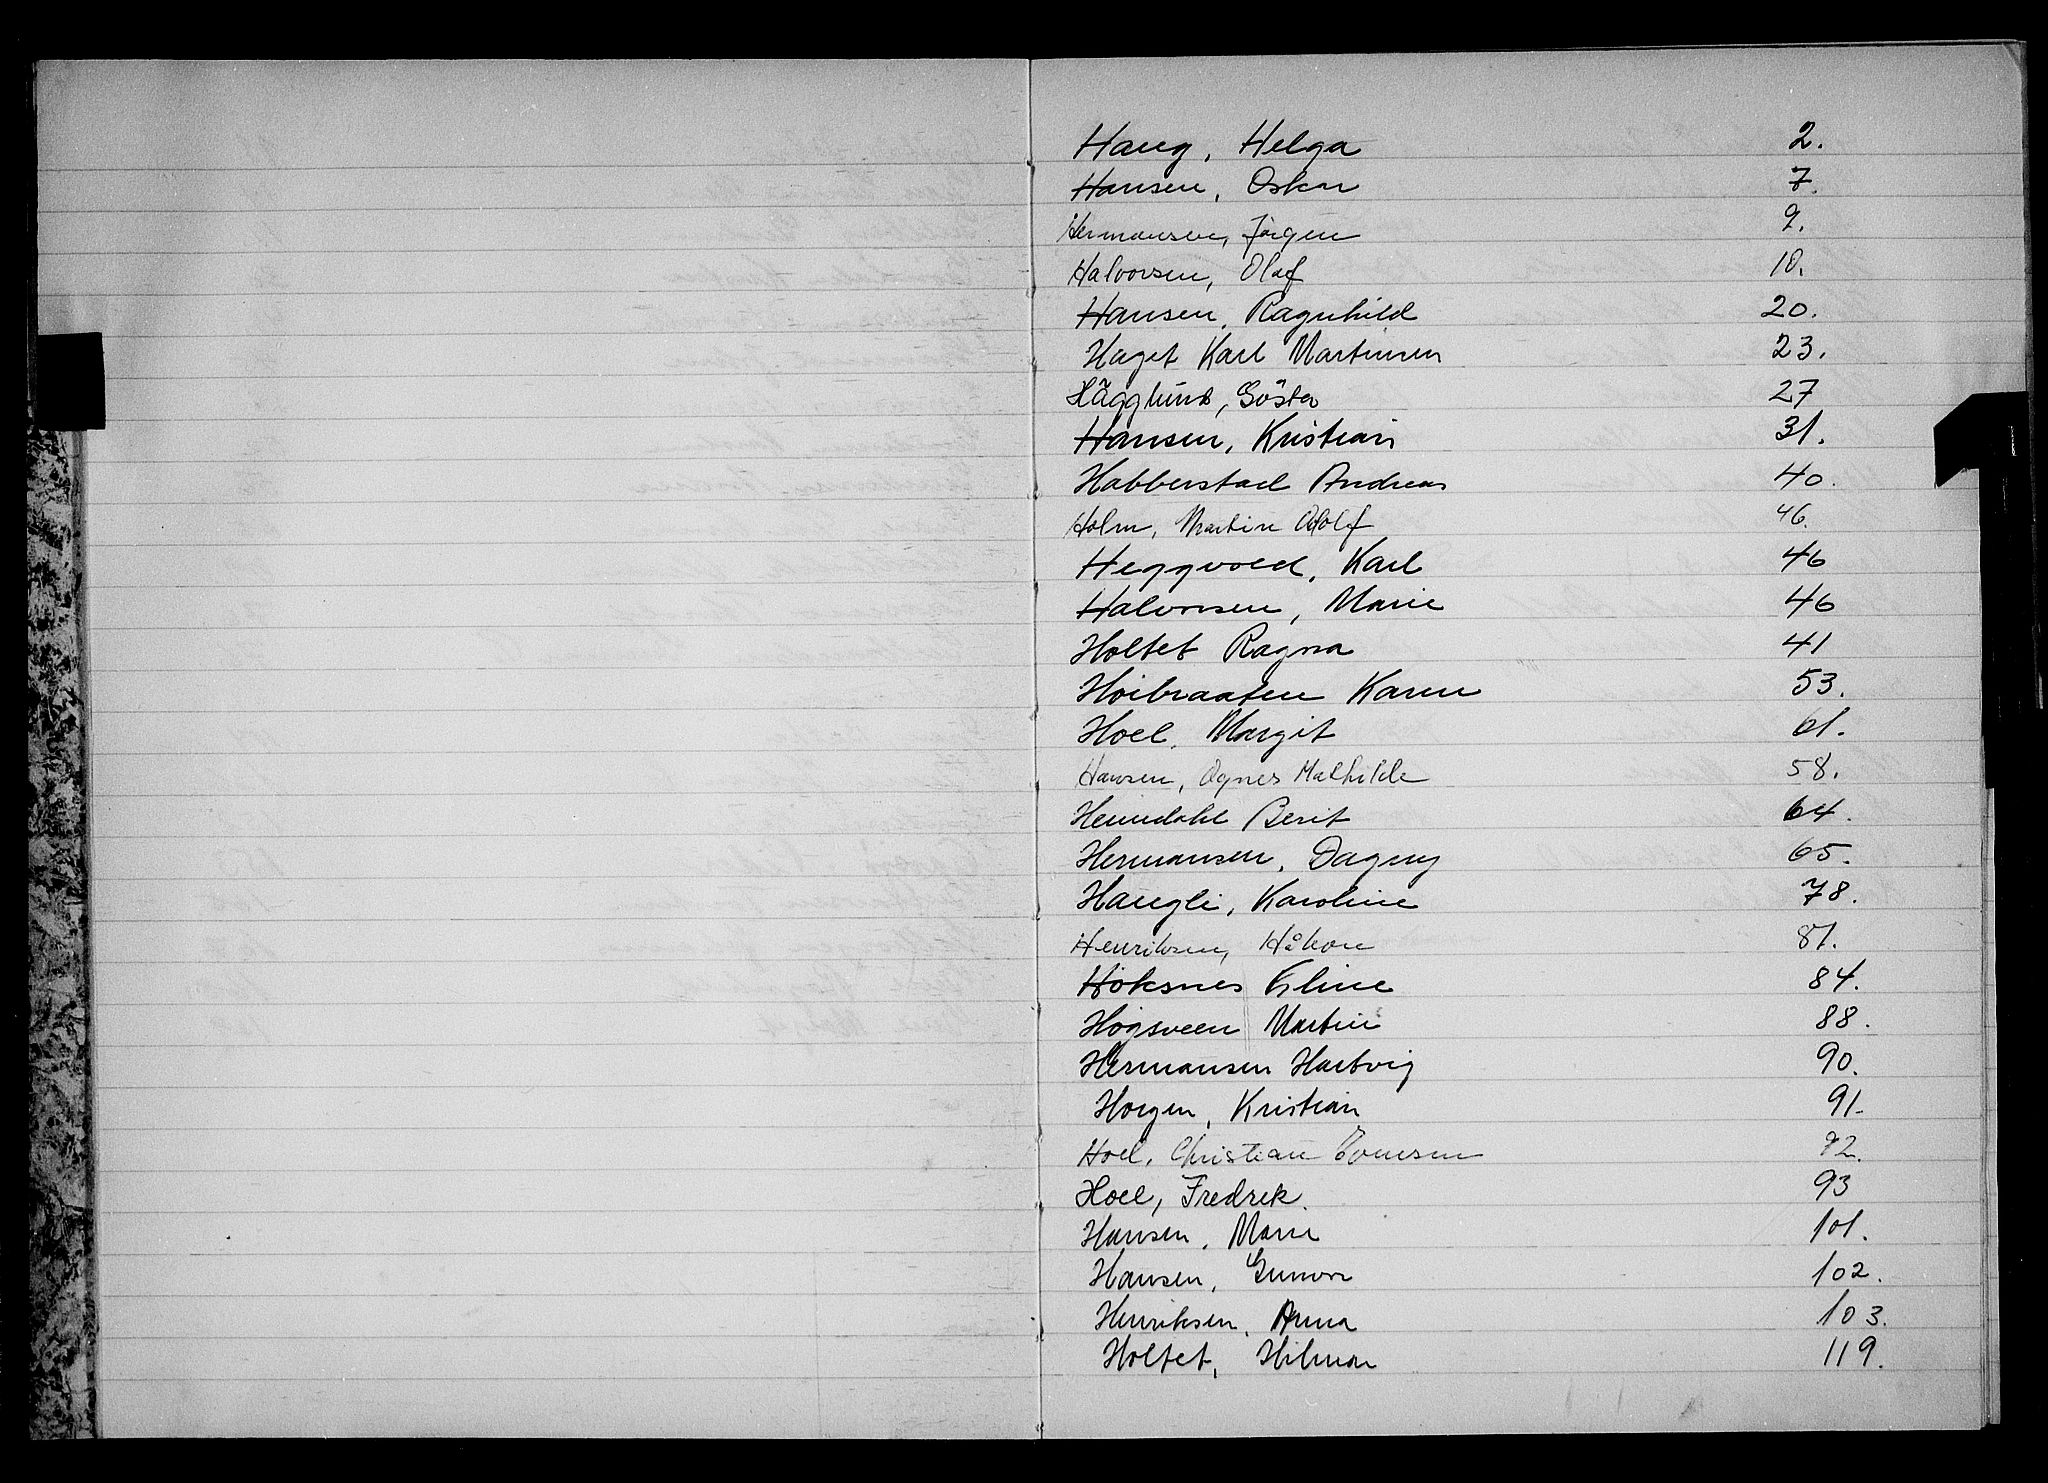 Haug, Helga 2.
Hansen, Oskar 7.
Hermansen, Jörgen 9.
Halvorsen, Olaf 10.
Hansen, Ragnhild 20.
Haget Karl Martinsen 23.
Hägglund, Gösta 27
Hansen, Kristian 31.
Habberstad Andreas 40.
Holm, Martin Adolf 46.
Heggvold, Karl 46
Halvorsen, Marie 46
Holtet Ragna 41
Hoibraaten Karen 53.
Hoel, Margit 61.
Hansen, Agnes Mathilde 58.
Heimdahl Berit 64.
Hermansen, Dagny 65.
Haugli, Karoline 78.
Henriksen, Håkon 81.
Høksnes Eline 84.
Høgsveen Martin 88.
Hermansen Hartvig 90.
Horgen, Kristian 91.
Hoel, Christian Evensen 92.
Hoel, Fredrik. 93
Hansen, Marie 101.
Hansen, Gunvor 102.
Henriksen, Anna 103.
Holtet, Hilmar 119.